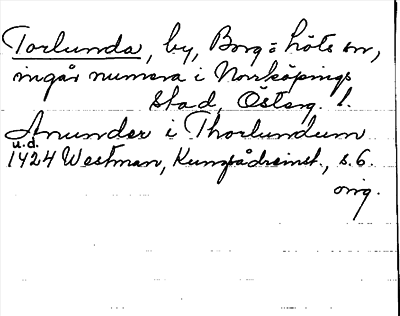 Torlunda, by, Borg o Löts sn,
ingår numera i Norrköpings
stad, Österg. l.
Anunder i Thorlundum
u.d.
1424 Westman, Kungsådreinst., s. 6.
orig.